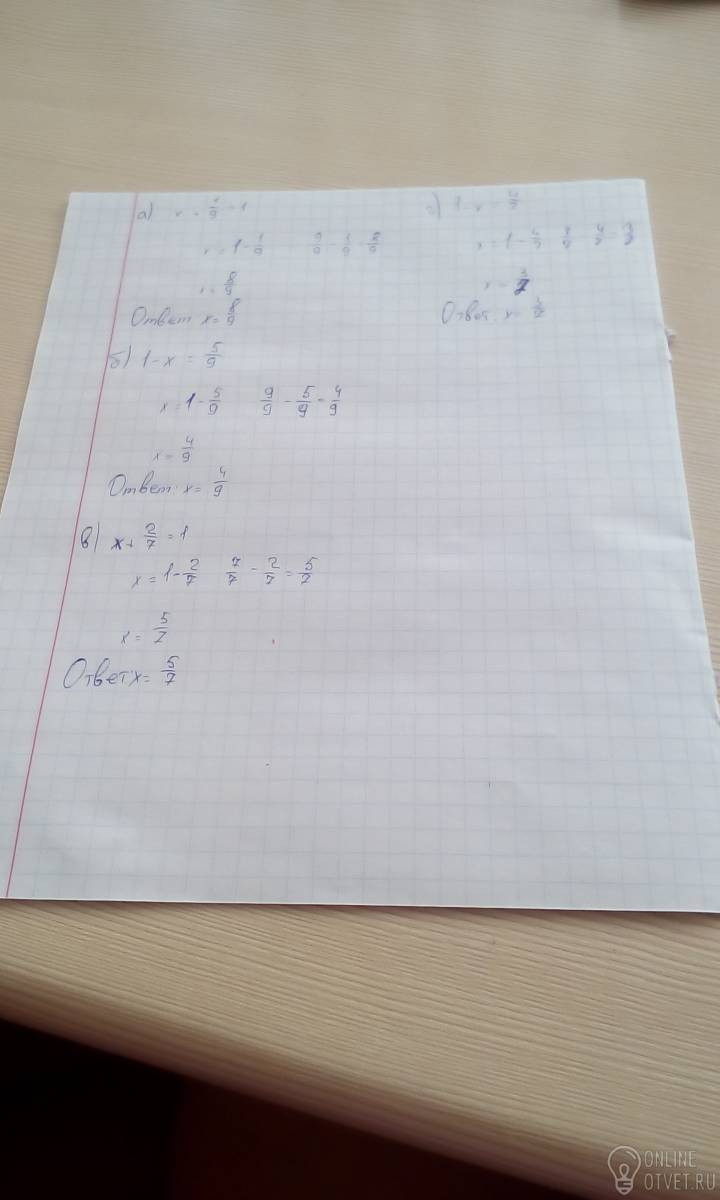 а) x + 1/9 = 1
x = 1 - 1/9 9/9 - 1/9 = 8/9
x = 8/9
Ответ x = 8/9
б) 1 - x = 5/9
x = 1 - 5/9 9/9 - 5/9 = 4/9
x = 4/9
Ответ: x = 4/9
в) x + 2/7 = 1
x = 1 - 2/7 7/7 - 2/7 = 5/7
x = 5/7
Ответ: x = 5/7
1 - x = 4/7
x = 1 - 4/7 7/7 - 4/7 = 3/7
x = 3/7
Ответ: x = 3/7
ONLINE
OTVET.RU